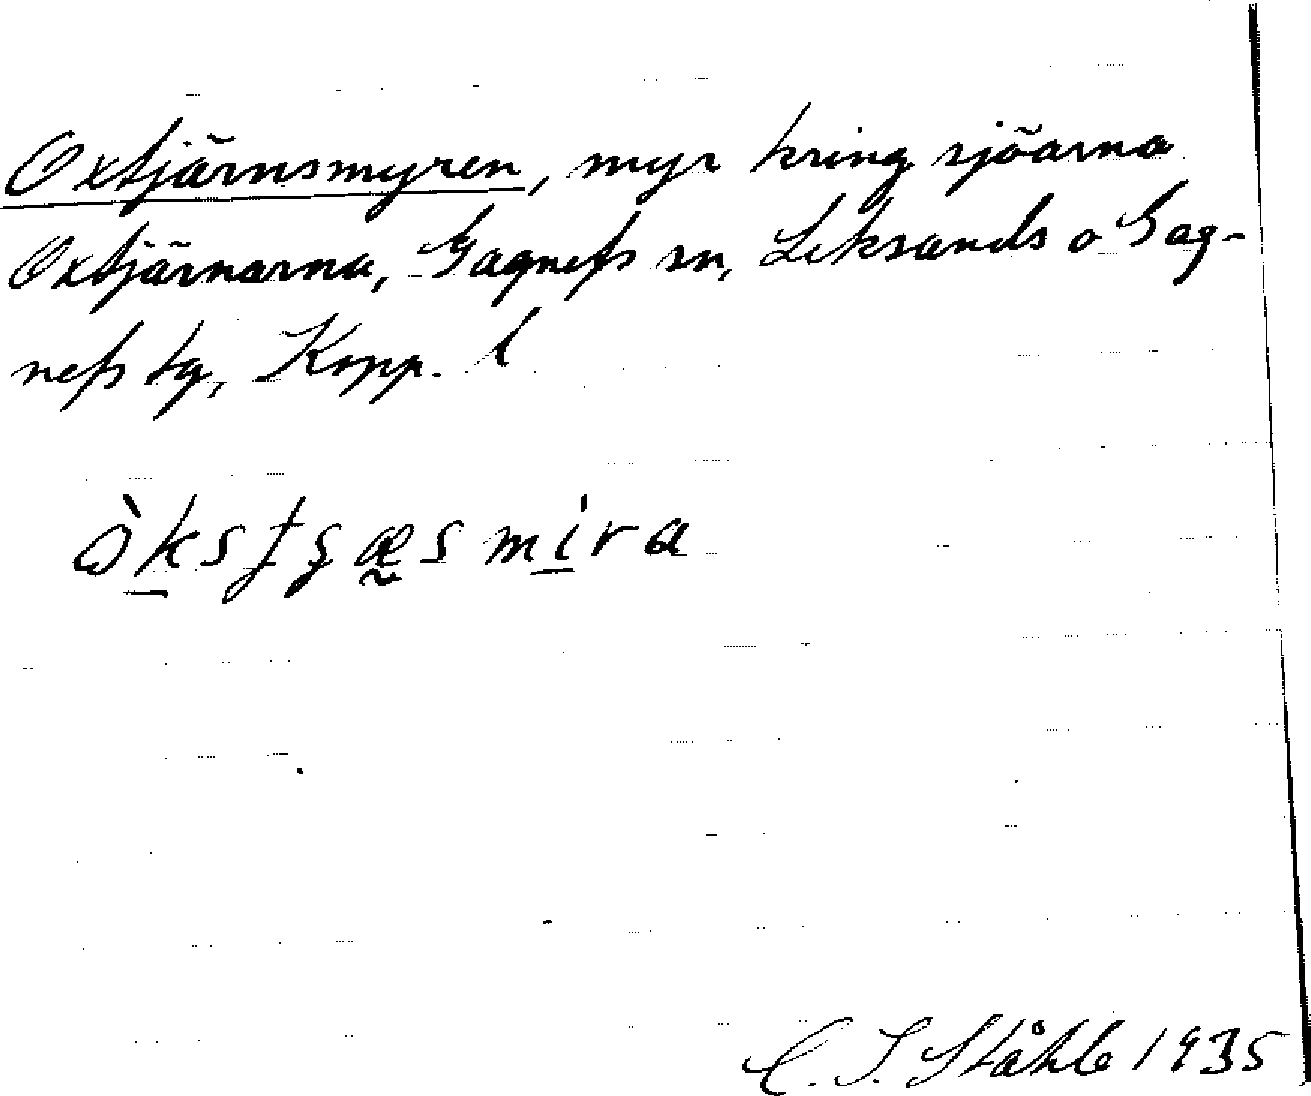 Oxtjärnsmyren, myr kring sjöarna
Oxtjärnarna, Gagnefs sn, Leksands o Gag-
nefs tg, Kopp. l
òksʈʂæsmira
C. I. Ståhle 1935